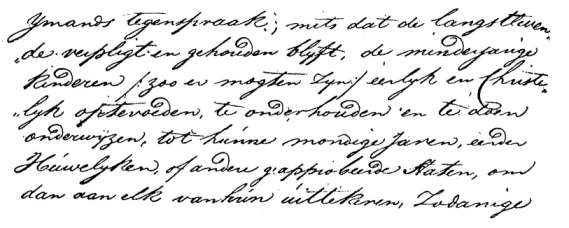 Ymands tegenspraak; mits dat de langstleven„
„de verpligt en gehouden blyft, de minderjarige
kinderen /: zoo er mogten zyn :/ eerlyk en Christe„
„lyk optevoeden, te onderhouden en te doen
onderwyzen, tot hunne mondige Jaren, eerder
Huwelyken, of andere geapprobeerde Staten, om
dan aan elk van hun uittekeren, Zodanige